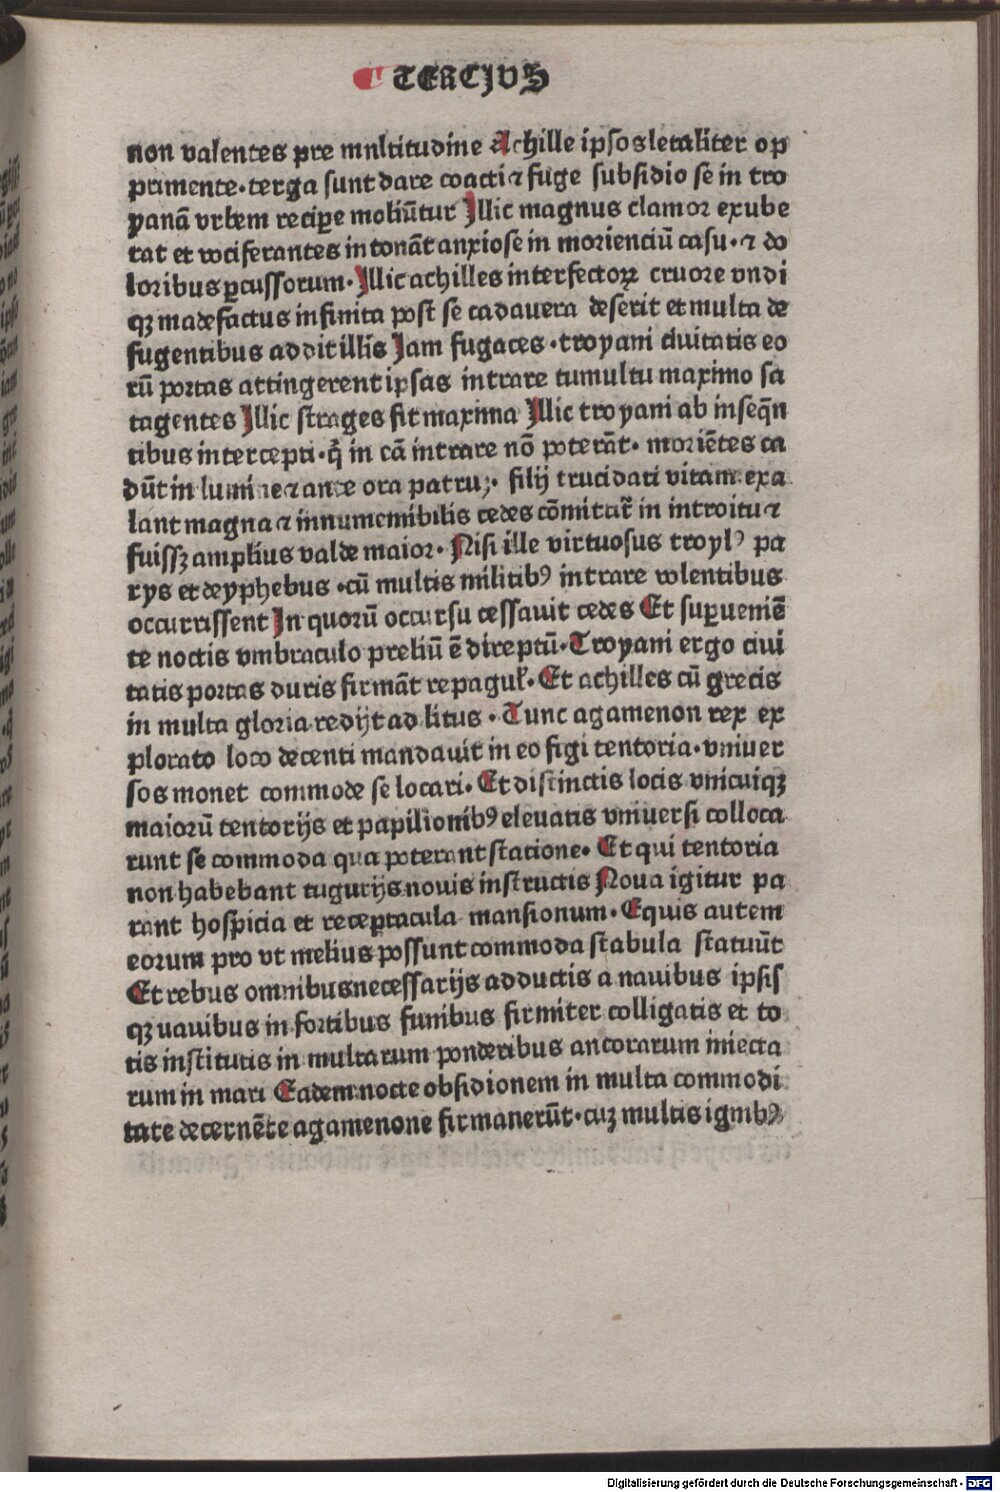 ¶ TERCIVS
non valentes pre mnltitudine Achille ipsos letaliter op
primente·terga sunt dare coacti ⁊ fuge subsidio se in tro
yanā vrbem recipe moliūtur Illic magnus clamor exube
rat et vociferantes intonāt anxiose in morienciū casu·⁊ do
loribus ꝑcussorum·Illic achilles interfectoꝝ cruore vndi
qꝫ madefactus infinita post se cadauera deserit et multa de
fugentibus addit illis Iam fugaces·troyani ciuitatis eo
rū portas attingerent ipsas intrare tumultu maximo sa
tagentes Illic strages fit maxima Illic troyani ab inseq̄n
tibus intercepti·q̄ in eā intrare nō poterāt· moriētes ca
dūt in lumine ⁊ ante ora patruꝫ· filij trucidati vitam exa
lant magna ⁊ innumerabilis cedes cōmitatur̄ in introitu ⁊
fuissꝫ amplius valde maior· Nisi ille virtuosus troylꝰ pa
rys et deyphebus·cū multis militibꝰ intrare volentibus
occurrissent In quorū occursu cessauit cedes Et suꝑueniē
te noctis vmbraculo preliū ē direptū·Troyani ergo ciui
tatis portas duris firmāt repagul̄·Et achilles cū grecis
in multa gloria redijt ad litus·Tunc agamenon rex ex
plorato loco decenti mandauit in eo figi tentoria·vniuer
sos monet commode se locari·Et distinctis locis vnicuiqꝫ
maiorū tentorijs et papilionibꝰ eleuatis vniuersi colloca
runt se commoda qua poterant statione·Et qui tentoria
non habebant tugurijs nouis instructis Noua igitur pa
rant hospicia et receptacula mansionum·Equis autem
eorum pro vt melius possunt commoda stabula statuūt
Et rebus omnibus necessarijs adductis a nauibus ipsis
qꝫ uauibus in fortibus funibus firmiter colligatis et to
tis institutis in multarum ponderibus ancorarum iniecta
rum in mari Eadem nocte obsidionem in multa commodi
tate decernēte agamenone firmanerūt·cuꝫ multis ignibꝰ
Digitalisierung gefördert durch die Deutsche Forschungsgemeinschaft - DFG